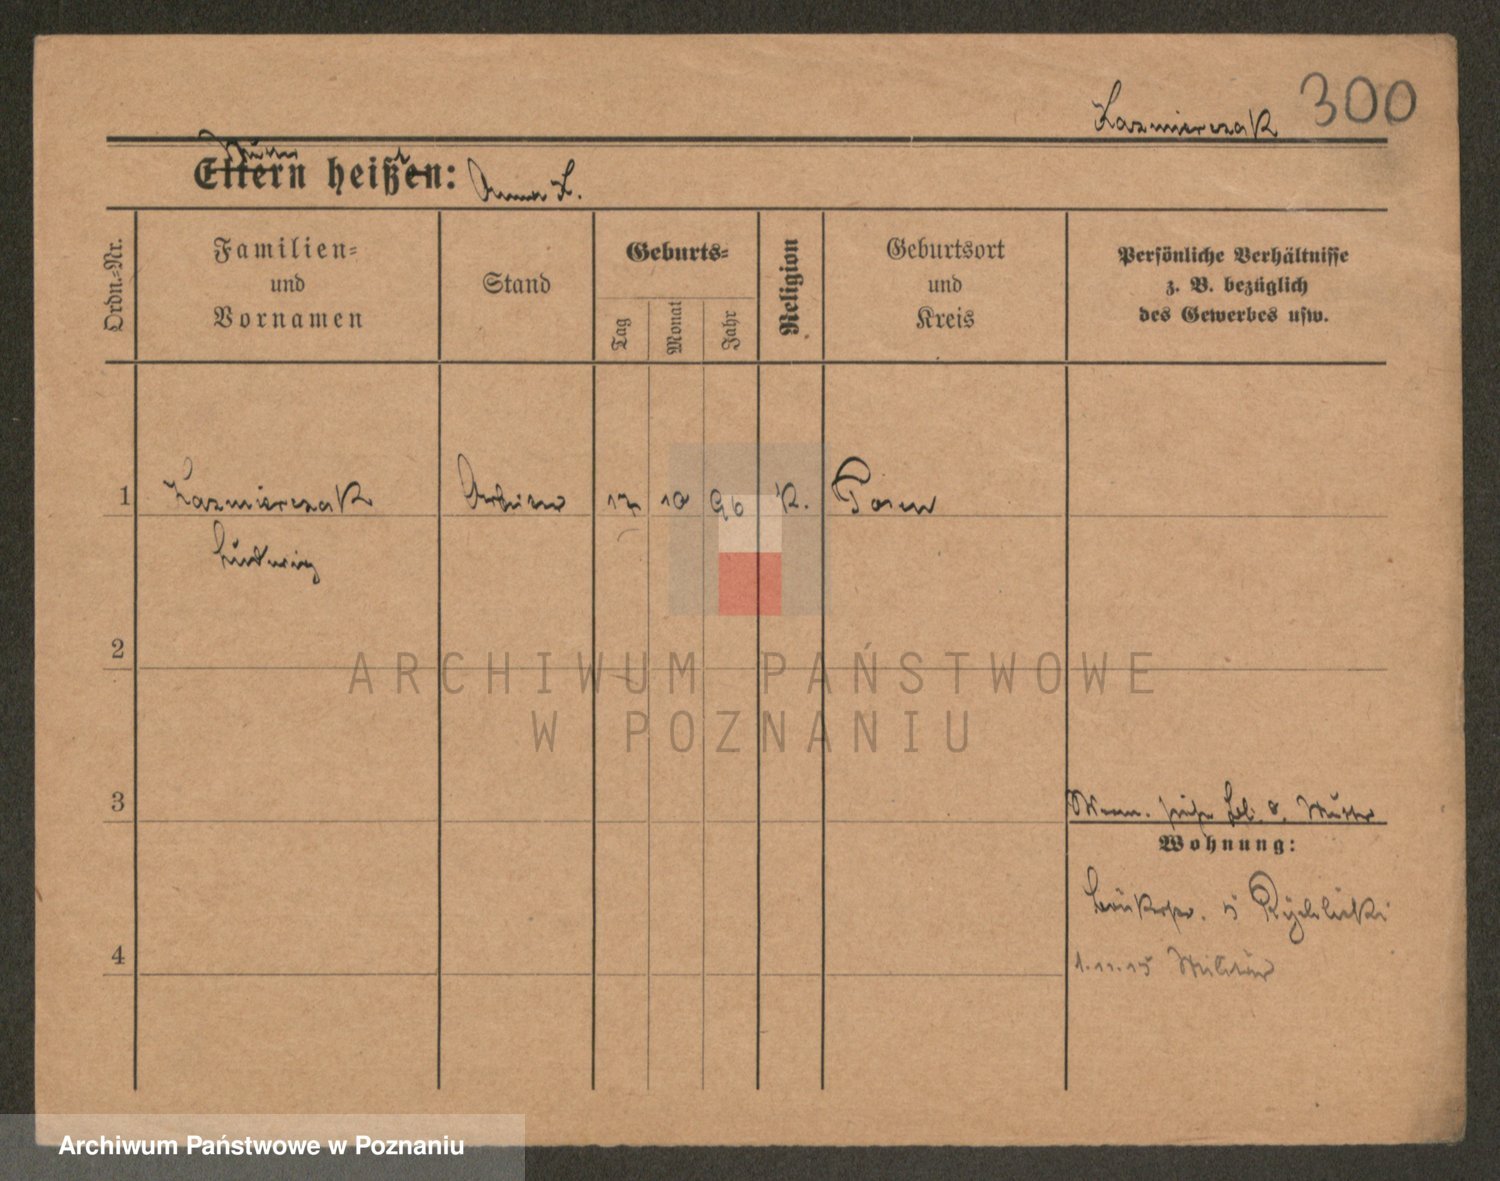 Kazmierczak 300
Eltern heißen: Anna K.
Ordn.-Nr.
Familien-
und
Vornamen
Stand
Geburts-
Tag
Monat
Jahr
Religion
Geburtsort
und
Kreis
Persönliche Verhältnisse
z. B. bezüglich
des Gewerbes usw.
1 Kazmierczak Arbeiter 17 10 96 K. Posen
Ludwig
2
ARCHIWUM PAŃSTWOWE
W POZNANIU
3
Mutter
Wohnung:
4
1.11.15 Militär
Archiwum Państwowe w Poznaniu